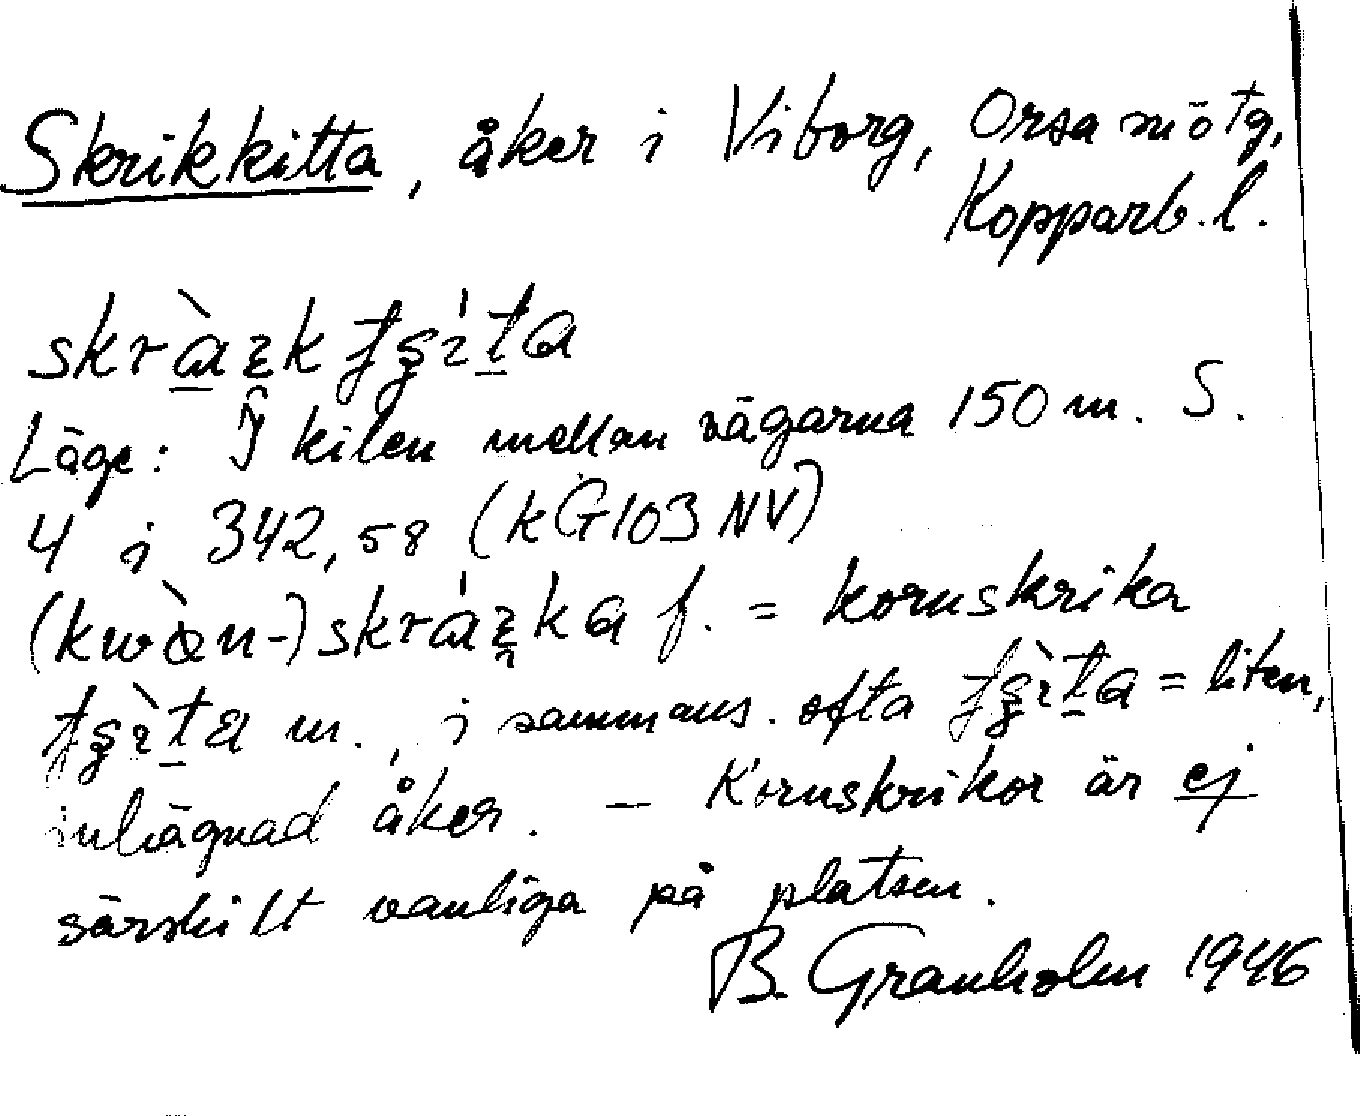 Skrikkitta, åker i Viborg, Orsa mötg,
Kopparb. l.
Läge: I kilen mellan vägarna 150 m. S.
4 i 342,58 (kG103NV)
f. = kornskrika
m., i sammans. ofta = liten,
inhägnad åker. – Kornskrikor är ej
särskilt vanliga på platsen.
B. Granholm 1946